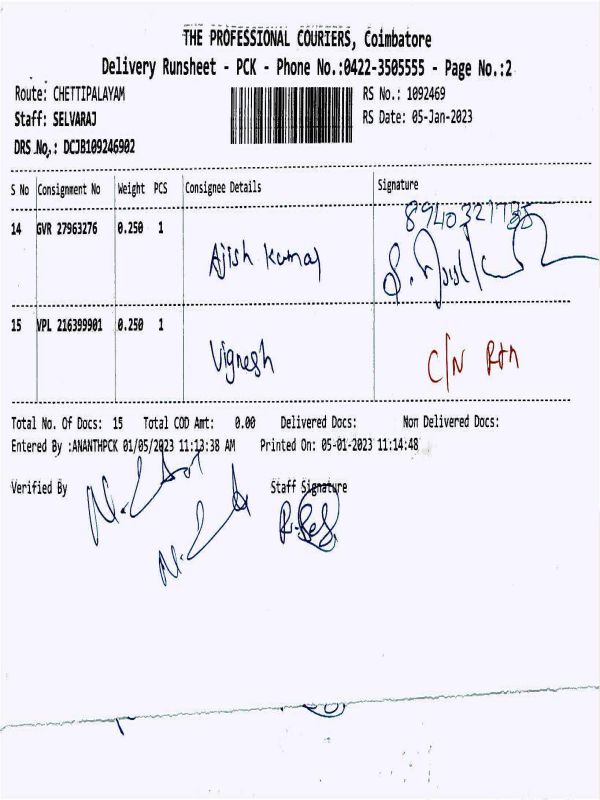 THE PROFESSIONAL COURIERS, Coimbatore
Delivery Runsheet - PCK - Phone No.:0422-3505555 - Page No.:2
Route: CHETTIPALAYAM RS No.: 1092469
Staff: SELVARAJ RS Date: 05-Jan-2023
DRS No,: DCJB109246902
S No Consignment No Weight PCS Consignee Details Signature
8940321785
14 GVR 27963276 0.250 1
Ajish Kumar
15 VPL 216399901 0.250 1
Vignesh C/N
Total No. Of Docs: 15 Total COD Amt: 0.00 Delivered Docs: Non Delivered Docs:
Entered By :ANANTHPCK 01/05/2023 11:13:38 AM Printed On: 05-01-2023 11:14:48
Verified By Staff Signature